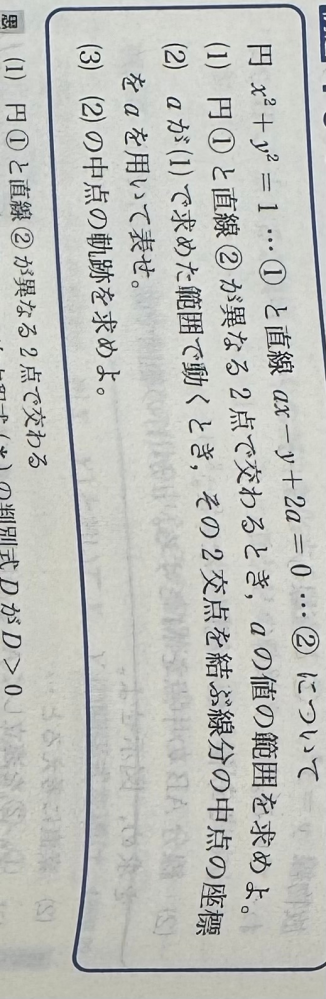 円 x²+y²=1 …① と直線 ax−y+2a=0 …② について
(1) 円①と直線②が異なる2点で交わるとき，aの値の範囲を求めよ。
(2) aが(1)で求めた範囲で動くとき，その2交点を結ぶ線分の中点の座標
をaを用いて表せ。
(3) (2)の中点の軌跡を求めよ。
(1) 円①と直線②が異なる2点で交わる
(*)の判別式DがD>0